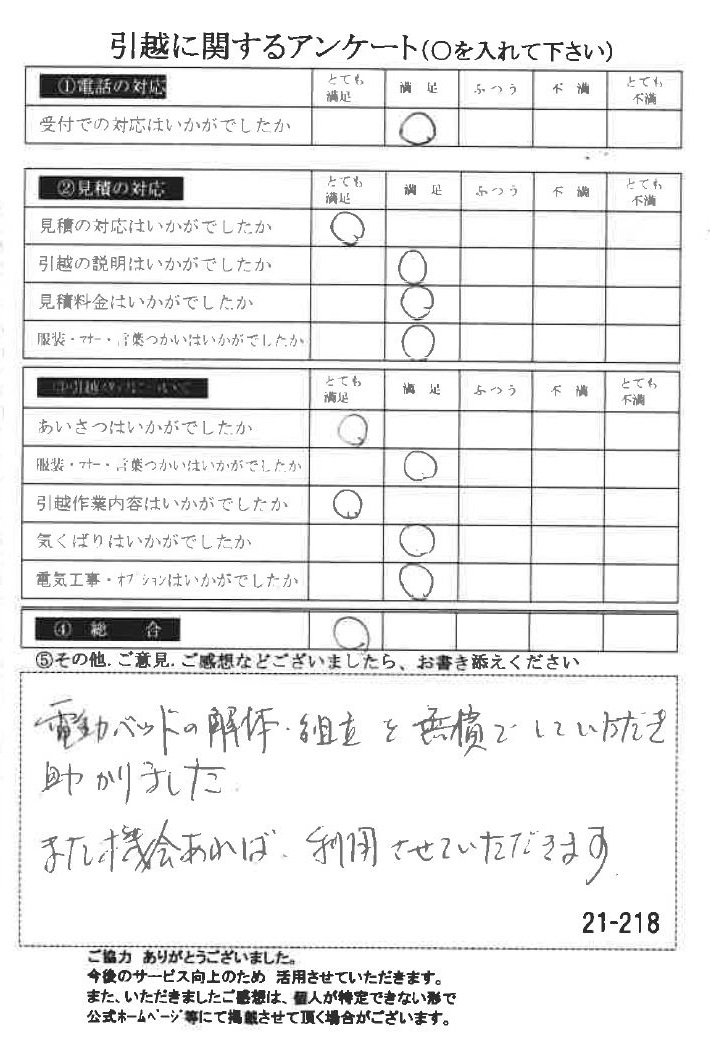 引越に関するアンケート(○を入れて下さい)
①電話の対応 とても満足 満足 ふつう 不満 とても不満
受付での対応はいかがでしたか
②見積の対応 とても満足 満足 ふつう 不満 とても不満
見積の対応はいかがでしたか
引越の説明はいかがでしたか
見積料金はいかがでしたか
服装・マナー・言葉つかいはいかがでしたか
とても満足 満足 ふつう 不満 とても不満
あいさつはいかがでしたか
服装・マナー・言葉つかいはいかがでしたか
引越作業内容はいかがでしたか
気くばりはいかがでしたか
電気工事・オプションはいかがでしたか
④ 総 合
⑤その他.ご意見.ご感想などございましたら、お書き添えください
電動ベッドの解体・組立を無償でしていただき
助かりました.
また機会あれば、利用させていただきます.
21-218
ご協力 ありがとうございました。
今後のサービス向上のため 活用させていただきます。
また、いただきましたご感想は、個人が特定できない形で
公式ホームページ等にて掲載させて頂く場合がございます。